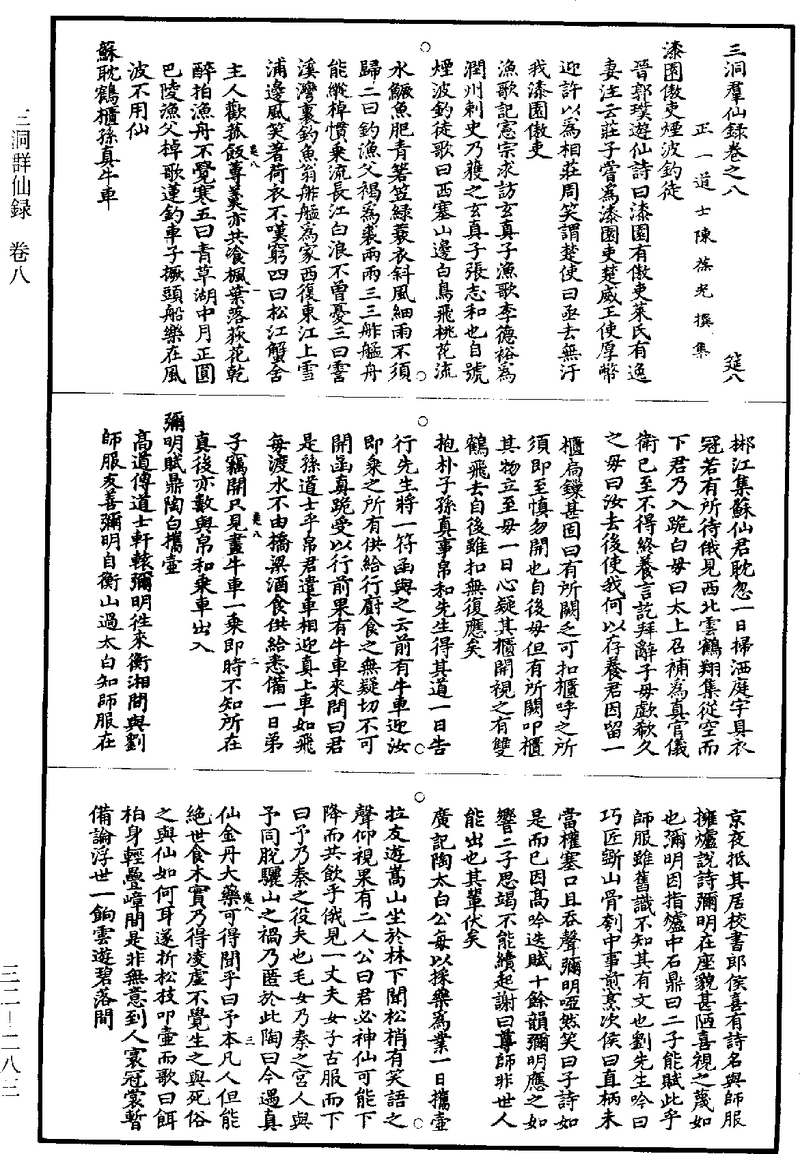 三洞群仙録　卷八
三洞羣仙錄卷之八　筵八
正一道士陳葆光撰集
漆園傲吏煙波釣徒
晉郭璞遊仙詩曰漆園有傲吏萊氏有逸
妻注云莊子嘗爲漆園吏楚威王使厚幣
迎許以爲相莊周笑謂楚使曰亟去無汙
我漆園傲吏
漁歌記憲宗求訪玄真子漁歌李德裕爲
潤州刺史乃獲之玄真子張志和也自號
煙波釣徒歌曰西塞山邊白鳥飛桃花流
水鱖魚肥青箬笠綠蓑衣斜風細雨不須
歸二曰釣漁父褐爲裘兩兩三三舴艋舟
能縱棹慣乘流長江白浪不曾憂三曰霅
溪灣裏釣魚翁舴艋爲家西復東江上雪
浦邊風笑著荷衣不嘆窮四曰松江蟹舍
筵八　一
主人歡菰飯蓴羹亦共飡楓葉落荻花乾
醉拍漁舟不覺寒五曰青草湖中月正圓
巴陵漁父棹歌蓮釣車子橛頭船樂在風
波不用仙
蘇耽鶴櫃孫真牛車
郴江集蘇仙君耽忽一日掃洒庭宇具衣
冠若有所待俄見西北雲鶴翔集從空而
下君乃入跪白母曰太上召補爲真官儀
衛已至不得終養言訖拜辭子母歔欷久
之母曰汝去後使我何以存養君因留一
櫃扃鏁甚固曰有所闕乏可扣櫃呼之所
須即至慎勿開也自後母但有所闕叩櫃
其物立至母一日心疑其櫃開視之有雙
鶴飛去自後雖扣無復應矣
抱朴子孫真事帛和先生得其道一日告
行先生將一符函與之云前有牛車迎汝
即乘之所有供給行廚食之無疑切不可
開函真跪受以行前果有牛車來問曰君
是孫道士乎帛君遣車相迎真上車如飛
每渡水不由橋梁酒食供給悉備一日弟
筵八　二
子竊開只見畫牛車一乘即時不知所在
真後亦數與帛和乘車出入
彌明賦鼎陶白攜壺
高道傳道士軒轅彌明徃來衡湘間與劉
師服友善彌明自衡山過太白知師服在
京夜抵其居校書郎侯喜有詩名與師服
擁爐說詩彌明在座貌甚陋喜視之蔑如
也彌明因指爐中石鼎曰二子能賦此乎
師服雖舊識不知其有文也劉先生吟曰
巧匠斲山骨刳中事煎烹次侯曰直柄未
當權塞口且吞聲彌明啞然笑曰子詩如
是而已因高吟迭賦十餘韻彌明應之如
響二子思竭不能續起謝曰尊師非世人
能出也某輩伏矣
廣記陶太白公每以採藥爲業一日攜壺
拉友遊嵩山坐於林下聞松梢有笑語之
聲仰視果有二人公曰君必神仙可能下
降而共飲乎俄見一丈夫女子古服而下
曰予乃秦之役夫也毛女乃秦之宮人與
予同脫驪山之禍乃匿於此陶曰今遇真
筵八　三
仙金丹大藥可得聞乎曰予本凡人但能
絕世食木實乃得凌虛不覺生之與死俗
之與仙如何耳遂折松枝叩壺而歌曰餌
柏身輕疊嶂間是非無意到人寰冠裳暫
備論浮世一餉雲遊碧落間
三二—二八三